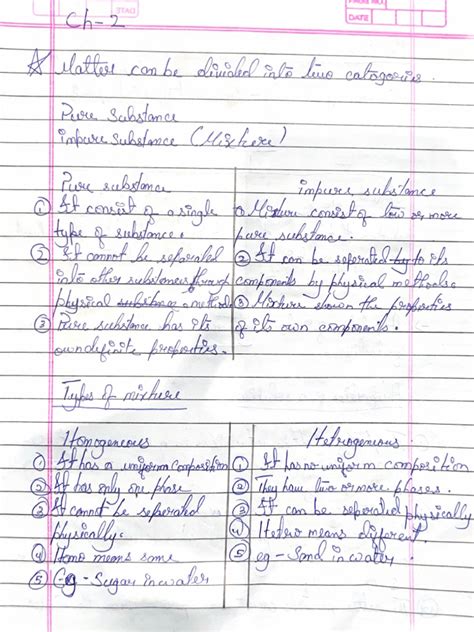 DATE
Ch-2
Matter can be divided into two catagories.
Pure Substance
impure substance (Mixture)
Pure substance
① It consist of a single
type of substance.
② It cannot be separated
into other substances through
physical substance method
③ Pure substance has its
own definite properties.
impure substance
① Mixture consist of two or more
pure substance.
② It can be seperated by to its
components by physical methods.
③ Mixture shown the properties
of its own components.
Types of mixture
Homogeneous
① It has a uniform composition
② It has only one phase
③ It cannot be seperated
physically.
④ Homo means same
⑤ Eg - Sugar in water
Hetrogenous.
① It has no uniform composition
② They have two or more phases.
③ It can be seperated physically
④ Hetro means different.
⑤ eg - Sand in water.